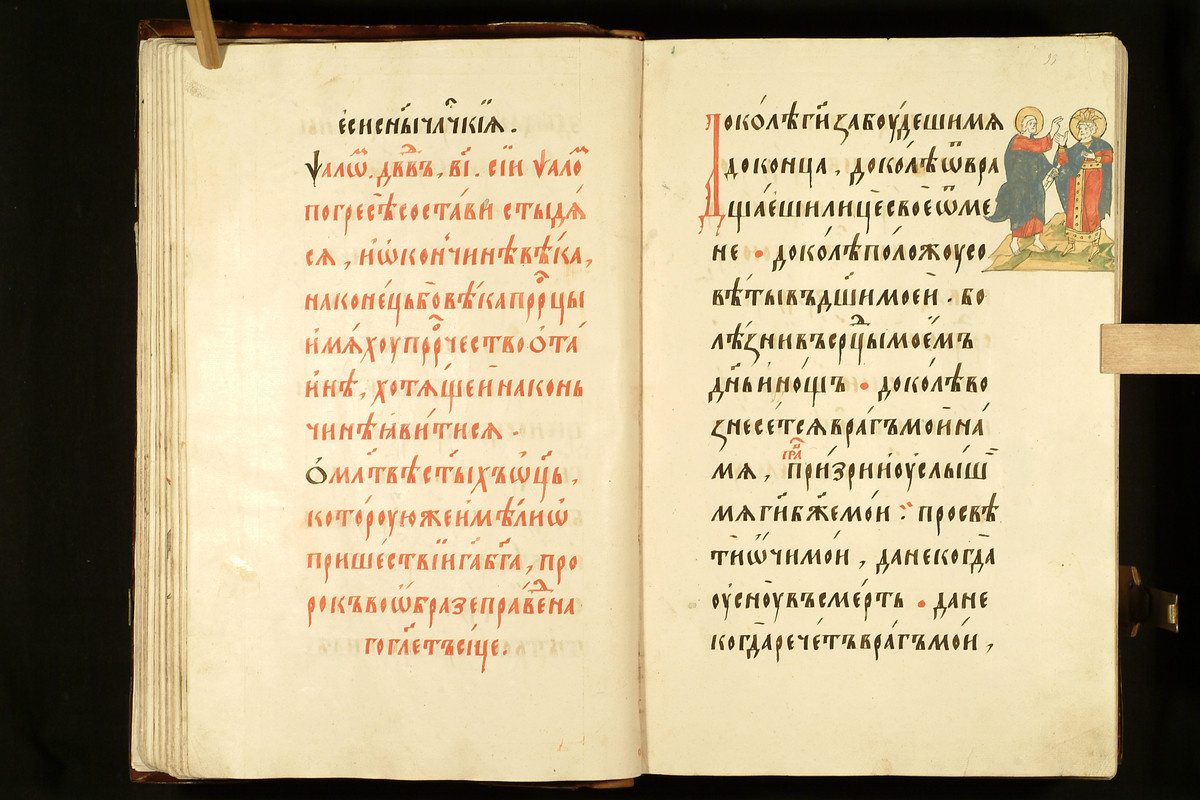 є҆си сн҃ы чл҃чкїѧ .
Ѱало́м . дв҃двъ , в҃і . сїи ѱало́м
погресѣ соста́ви стыдѧ́
сѧ , и҆ ѡ҆ кончинѣ вѣ́ка ,
на коне́цъ бо вѣ́ка прⷪ҇рцы
и҆мѧ́хоу прⷪ҇рчество ѻ҆ та́
инѣ , хотѧ́щеи на конь
чинѣ ꙗ҆ви́тисѧ .
Ѻ҆ мл҃твѣ ст҃ыхъ ѡ҆ц҃ъ ,
кото́роую же и҆мѣ́ли ѡ҆
прише́ствїи гд҃а бг҃а , про
рокъ во ѡ҆́бразе пра́веⷣна
го гл҃етъ си́це .
Доко́лѣ гд҃и забоу́деши мѧ
до конца , доко́лѣ ѿвра
ща́еши лицѐ свое ѿ ме
не . доко́лѣ положоу со
вѣ́ты въ дш҃и мое́и . бо
лѣ́зни въ срⷣцы мое́мъ
дн҃ь и но́щъ . доко́лѣ во
знесе́тсѧ вра́гъ мо́и на́
мѧ , при́зри и оу҆слы́ши
мѧ гд҃и бж҃е мо́и : просвѣ
ти́ ѻ҆чи мо́и , да некогда̀
оу҆сноу̀ въ сме́рть . да не
когда̀ рече́тъ вра́гъ мо́и ,